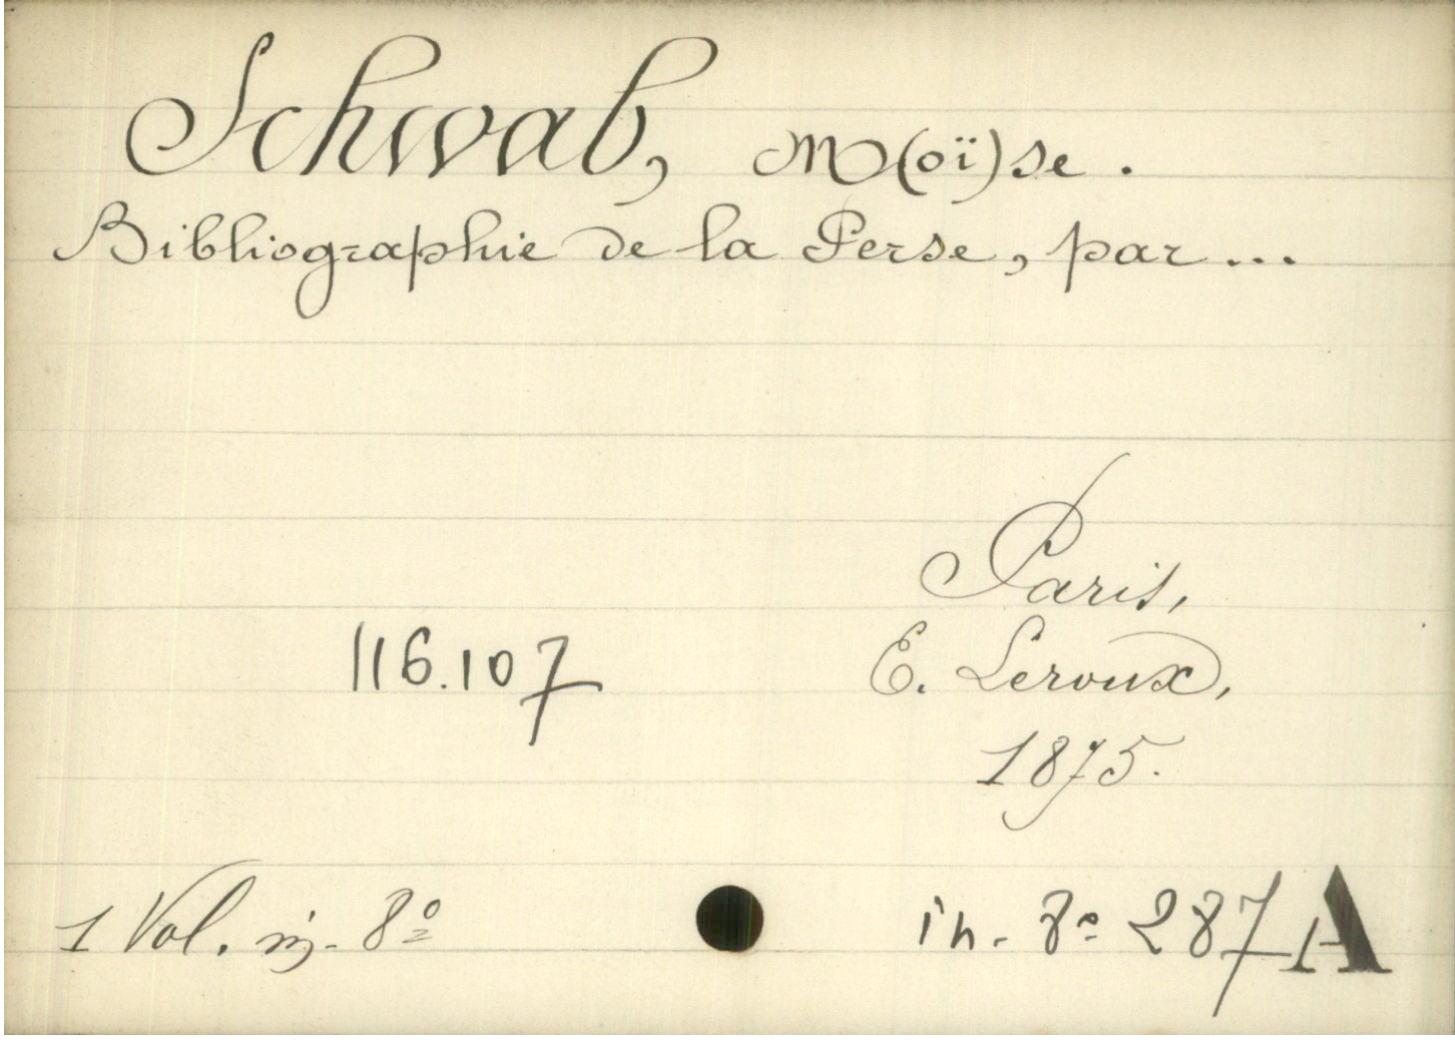 Schwab, M(oï)se.
Bibliographie de la Perse, par...
Paris,
116.107
E. Leroux,
1875.
1 Vol. in-8º
in-8º 287 A